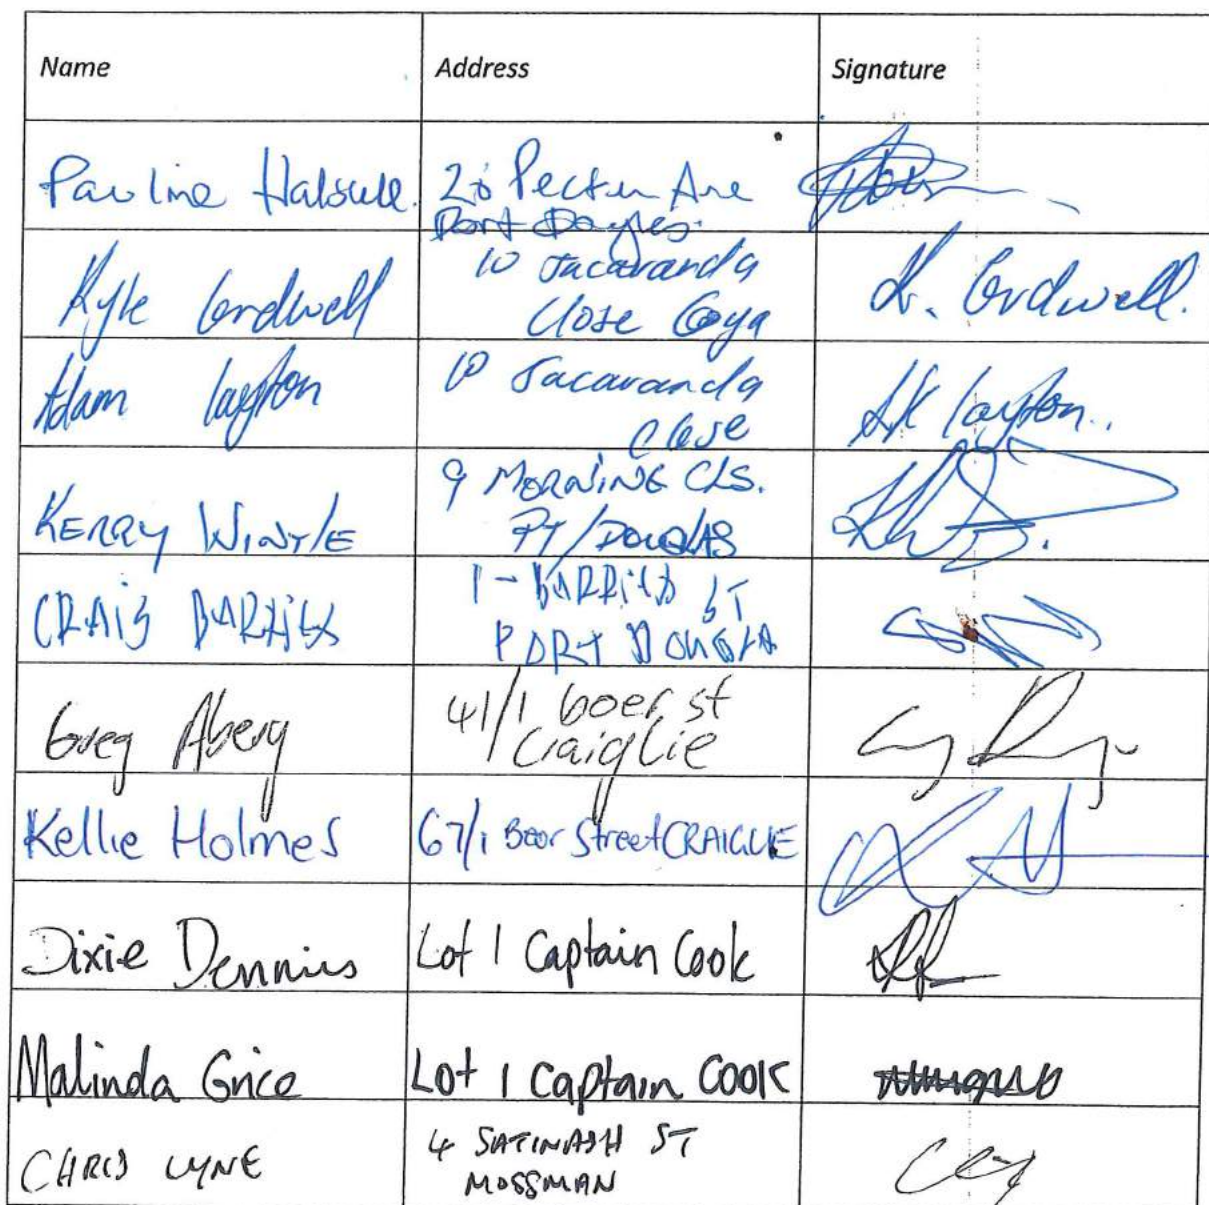 Name Address Signature
Pauline Halsull. 26 Pecten Ave
Port Douglas.
Kyle Cordwell 10 Jacaranda K. Cordwell.
Close Cooya
Adam Layton 10 Jacaranda AK Layton.
Close
KERRY WINTLE 9 MORNING CLS.
PT/DOUGLAS
CRAIG 1 - ST
PORT
Greg Aberg 41/1 boer st
Craiglie
Kellie Holmes 67/1 Beor Street CRAIGLIE
Dixie Dennis Lot 1 Captain Cook
Malinda Grice Lot 1 Captain Cook
CHRIS LYNE 4 SATINASH ST
MOSSMAN